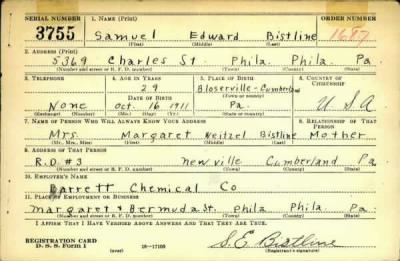 SERIAL NUMBER 1. NAME (Print) ORDER NUMBER
3755 Samuel Edward Bistline 1687
(First) (Middle) (Last)
2. ADDRESS (Print)
5369 Charles St. Phila. Phila. Pa.
(Number and street or R. F. D. number) (Town) (County) (State)
3. TELEPHONE 4. AGE IN YEARS 5. PLACE OF BIRTH 6. COUNTRY OF CITIZENSHIP
29 Bloserville-Cumberland
DATE OF BIRTH (Town or county)
None Oct. 16 1911 Pa. U S A
(Exchange) (Number) (Mo.) (Day) (Yr.) (State or country)
7. NAME OF PERSON WHO WILL ALWAYS KNOW YOUR ADDRESS 8. RELATIONSHIP OF THAT PERSON
Mrs. Margaret Neitzel Bistline Mother
(Mr., Mrs., Miss) (First) (Middle) (Last)
9. ADDRESS OF THAT PERSON
R.D #3 Newville Cumberland Pa
(Number and street or R. F. D. number) (Town) (County) (State)
10. EMPLOYER'S NAME
Barrett Chemical Co
11. PLACE OF EMPLOYMENT OR BUSINESS
Margaret & Bermuda St. Phila. Phila. Pa.
(Number and street or R. F. D. number) (Town) (County) (State)
I AFFIRM THAT I HAVE VERIFIED ABOVE ANSWERS AND THAT THEY ARE TRUE.
REGISTRATION CARD
D. S. S. Form 1 (over) 16—17105 S. E. Bistline
(Registrant's signature)